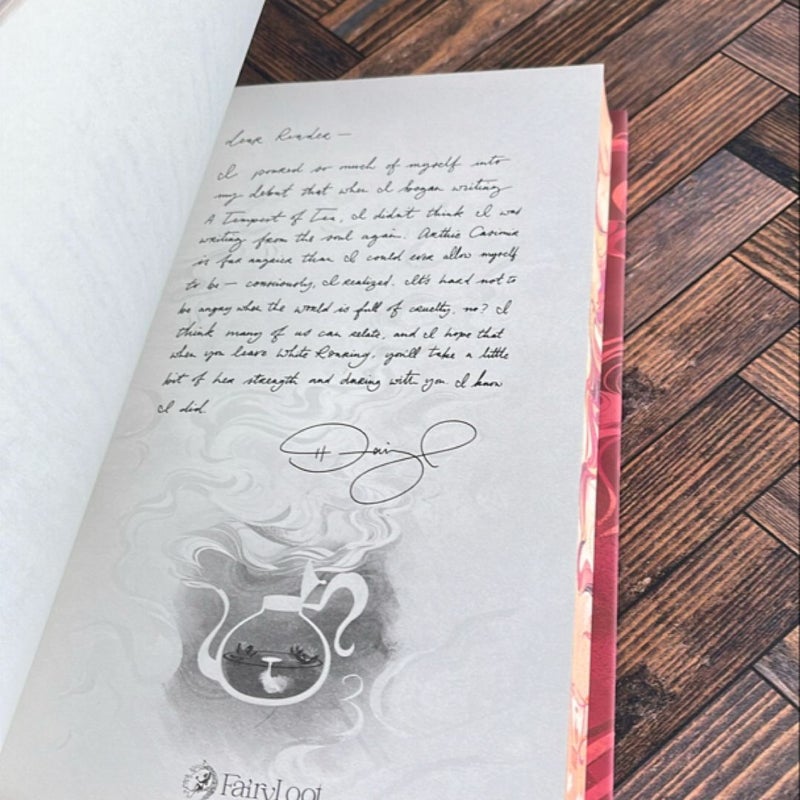 dear Reader —
I poured so much of myself into
my debut that when I began writing
A Tempest of Tea, I didn't think I was
writing from the soul again. Arthie Casimir
is far angrier than I could ever allow myself
to be — consciously, I realized. It's hard not to
be angry when the world is full of cruelty, no? I
think many of us can relate, and I hope that
when you leave White Roaring, you'll take a little
bit of her strength and daring with you. I know
I did.
FairyLoot